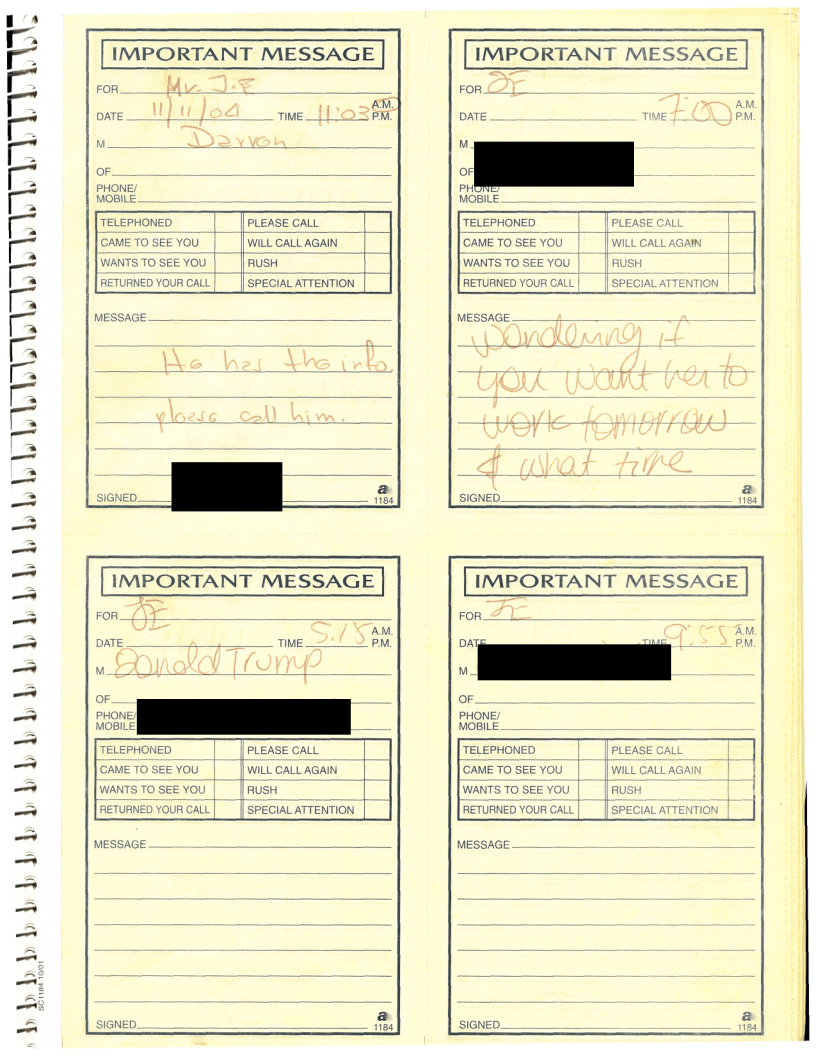 IMPORTANT MESSAGE
FOR Mr. J.E
DATE 11/11/04 TIME 11:03 A.M. P.M.
M Darron
OF
PHONE/
MOBILE
TELEPHONED PLEASE CALL
CAME TO SEE YOU WILL CALL AGAIN
WANTS TO SEE YOU RUSH
RETURNED YOUR CALL SPECIAL ATTENTION
MESSAGE
He has the info
please call him.
SIGNED
a
1184
IMPORTANT MESSAGE
FOR JE
DATE TIME 7:00 A.M. P.M.
M
OF
PHONE/
MOBILE
TELEPHONED PLEASE CALL
CAME TO SEE YOU WILL CALL AGAIN
WANTS TO SEE YOU RUSH
RETURNED YOUR CALL SPECIAL ATTENTION
MESSAGE
wondering if
you want her to
work tomorrow
& what time
SIGNED
a
1184
IMPORTANT MESSAGE
FOR JE
DATE TIME 5:15 A.M. P.M.
M Donald Trump
OF
PHONE/
MOBILE
TELEPHONED PLEASE CALL
CAME TO SEE YOU WILL CALL AGAIN
WANTS TO SEE YOU RUSH
RETURNED YOUR CALL SPECIAL ATTENTION
MESSAGE
SIGNED
a
1184
IMPORTANT MESSAGE
FOR JE
DATE TIME 9:55 A.M. P.M.
M
OF
PHONE/
MOBILE
TELEPHONED PLEASE CALL
CAME TO SEE YOU WILL CALL AGAIN
WANTS TO SEE YOU RUSH
RETURNED YOUR CALL SPECIAL ATTENTION
MESSAGE
SIGNED
a
1184
SC1184 10/01